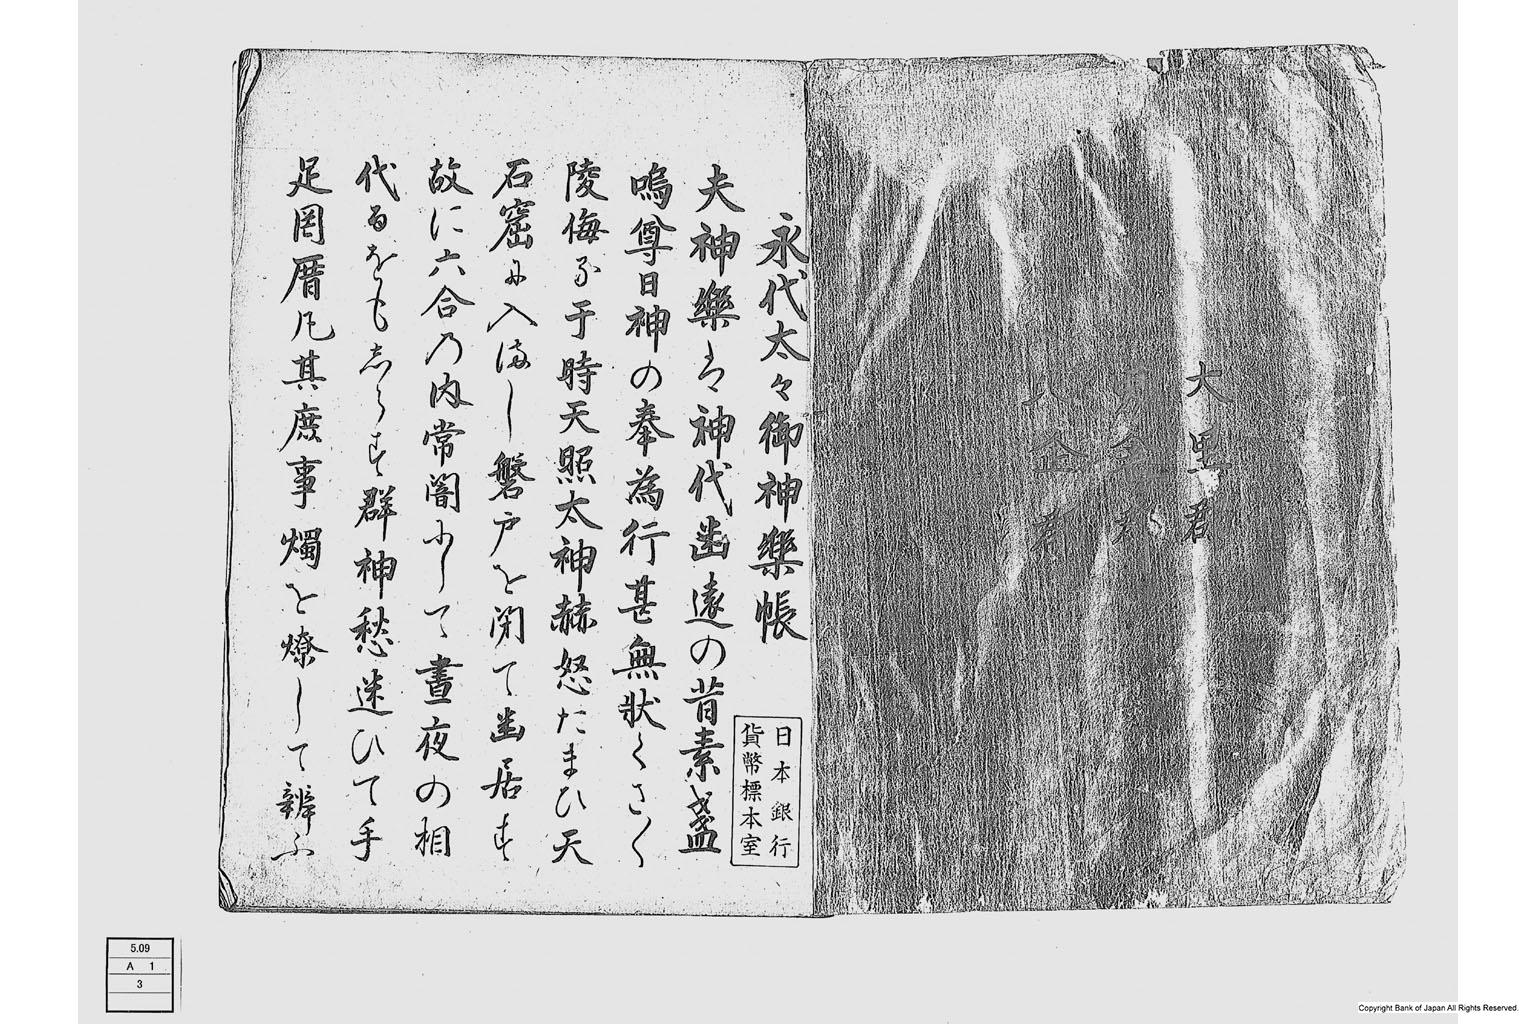 大里郡
八
永代太々御神樂帳
夫神樂ハ神代幽遠の昔素盞
嗚尊日神の奉為行甚無状くさ〱
陵侮る于時天照太神赫怒たまひ天
石窟に入ましして磐戸を閉て幽居す
故に六合の内常闇にして晝夜の相
代るをもしらす群神愁迷ひて手
足罔厝凡其庶事燭を燎して辨ふ
日本銀行
貨幣標本室
5.09
A 1
3
Copyright Bank of Japan All Rights Reserved.